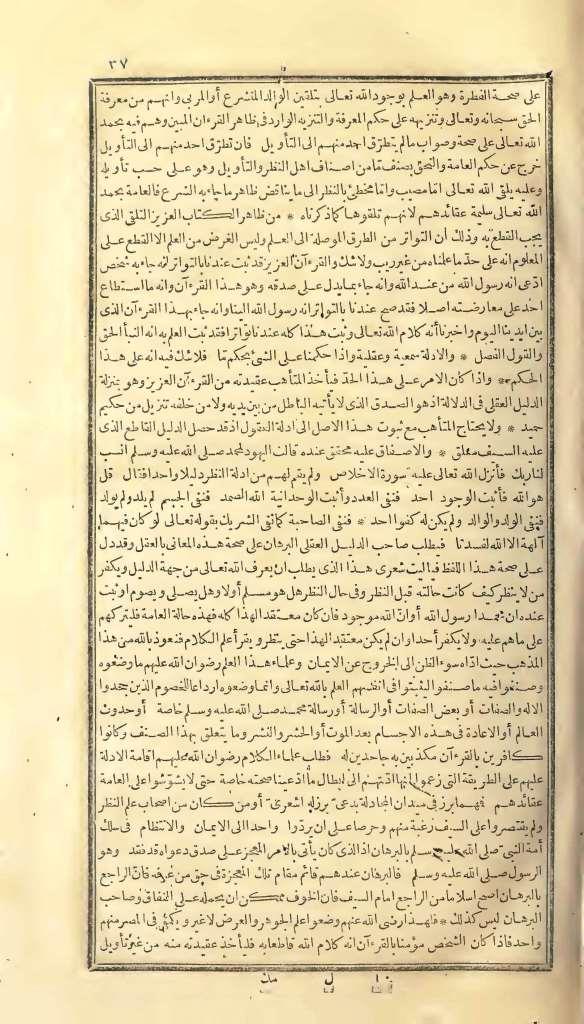 ٣٧
على صحة الفطرة وهو العلم بوجود الله تعالى بتلقين الوالد المتشرع أو المربى وانهم من معرفة
الحق سبحانه وتعالى وتنزيهه على حكم المعرفة والتنزيه الوارد فى ظاهر القرءان المبين وهم فيه بحمد
الله تعالى على صحة وصواب مالم يتطرق احد منهم الى التأويل فان تطرق احد منهم الى التأويل
خرج عن حكم العامة والتحق بصنف تما من اصناف اهل النظر والتأويل وهو على حسب تأويله
وعليه يلقى الله تعالى اما مصيب واما مخطئ بالنظر الى ما يناقض ظاهر ما جاء به الشرع فالعامة بحمد
الله تعالى سليمة عقائدهم لانهم تلقوها كما ذكرناه * من ظاهر الكتاب العزيز التلقى الذى
يجب القطع به وذلك أن التواتر من الطرق الموصلة الى العلم وليس الغرض من العلم الا القطع على
المعلوم انه على حد ما علمناه من غير ريب ولا شك والقرءآن العزيز قد ثبت عندنا بالتواتر انه جاء به شخص
ادّعى انه رسول الله من عند الله وانه جاء بما يدل على صدقه وهو هذا القرءآن وانه ما استطاع
احد على معارضته اصلا فقد صح عندنا بالتواتر انه رسول الله الينا وانه جاء بهذا القرءآن الذى
بين ايدينا اليوم واخبر نا أنه كلام الله تعالى وثبت هذا كله عندنا تواترا فقد ثبت العلم به انه النبأ الحق
والقول الفصل * والادلة سمعية وعقلية واذا حكمنا على الشئ بحكم تما فلا شك فيه انه على هذا
الحكم * واذا كان الامر على هذا الحد فيأخذ المتأهب عقيدته من القرءآن العزيز وهو بمنزلة
الدليل العقلى فى الدلالة اذ هو الصدق الذى لا يأتيه الباطل من بين يديه ولا من خلفه تنزيل من حكيم
حميد * ولا يحتاج المتأهب مع ثبوت هذا الاصل الى ادلة العقول اذ قد حصل الدليل القاطع الذى
عليه السيف معلق * والاصفاق عليه محقق عنده قالت اليهود لمحمد صلى الله عليه وسلم انسب
لنا ربك فأنزل الله تعالى عليه سورة الاخلاص ولم يقم لهم من ادلة النظر دليلا واحدا فقال قل
هو الله فأثبت الوجود احد فنفى العدد وأثبت الوحدانية الله الصمد فنفى الجسم لم يلد ولم يولد
فنفى الولد والوالد ولم يكن له كفوا احد * فنفى الصاحبة كما نفى الشريك بقوله تعالى لو كان فيهما
آلهة الا الله لفسدتا فيطلب صاحب الدليل العقلى البرهان على صحة هذه المعانى بالعقل وقد دل
على صحة هذا اللفظ فياليت شعرى هذا الذى يطلب ان يعرف الله تعالى من جهة الدليل ويكفر
من لا ينظر كيف كانت حالته قبل النظر وفى حال النظر هل هو مسلم أولا وهل يصلى ويصوم او ثبت
عنده ان محمدا رسول الله أو أنّ الله موجود فان كان معتقد الهذا كله فهذه حالة العامة فليتركهم
على ما هم عليه ولا يكفر أحدا وان لم يكن معتقد الهذا حتى ينظر ويقرأ علم الكلام فنعوذ بالله من هذا
المذهب حيث ادّاه سوء النظر الى الخروج عن الايمان وعلماء هذا العلم رضوان الله عليهم ما وضعوه
وصنفوا فيه ما صنفوا ليثبتوا فى انفسهم العلم بالله تعالى وانما وضعوه ارداعا للخصوم الذين جحدوا
الاله والصفات أو بعض الصفات أو الرسالة أو رسالة محمد صلى الله عليه وسلم خاصة أو حدوث
العالم أو الاعادة فى هذه الاجسام بعد الموت أو الحشر والنشر وما يتعلق بهذا الصنف وكانوا
كافرين بالقرءآن مكذبين به جاحدين له فطلب علماء الكلام رضوان الله عليهم اقامة الادلة
عليهم على الطريقة التى زعموا انها ادّتهم الى ابطال ما ادّعينا صحته خاصة حتى لا يشوّشوا على العامة
عقائدهم فمهما برز فى ميدان المجادلة بدعىّ برز له اشعرىّ أو من كان من اصحاب علم النظر
ولم يقتصروا على السيف رغبة منهم وحرصا على ان يردّوا واحدا الى الايمان والانتظام فى سلك
أمة النبىّ صلى الله عليه وسلم بالبرهان اذ الذى كان يأتى بالامر المعجز على صدق دعواه قد فقد وهو
الرسول صلى الله عليه وسلم فالبرهان عندهم قائم مقام تلك المعجزة فى حق من عرفه فان الراجع
بالبرهان اصح اسلاما من الراجع امام السيف فان الخوف ممكن ان يحمله على النفاق وصاحب
البرهان ليس كذلك * فلهذا رضى الله عنهم وضعوا علم الجوهر والعرض لا غير ويكفى فى المصر منهم
واحد فاذا كان الشخص مؤمنا بالقرءآن انه كلام الله قاطعا به فليأخذ عقيدته منه من غير تأويل